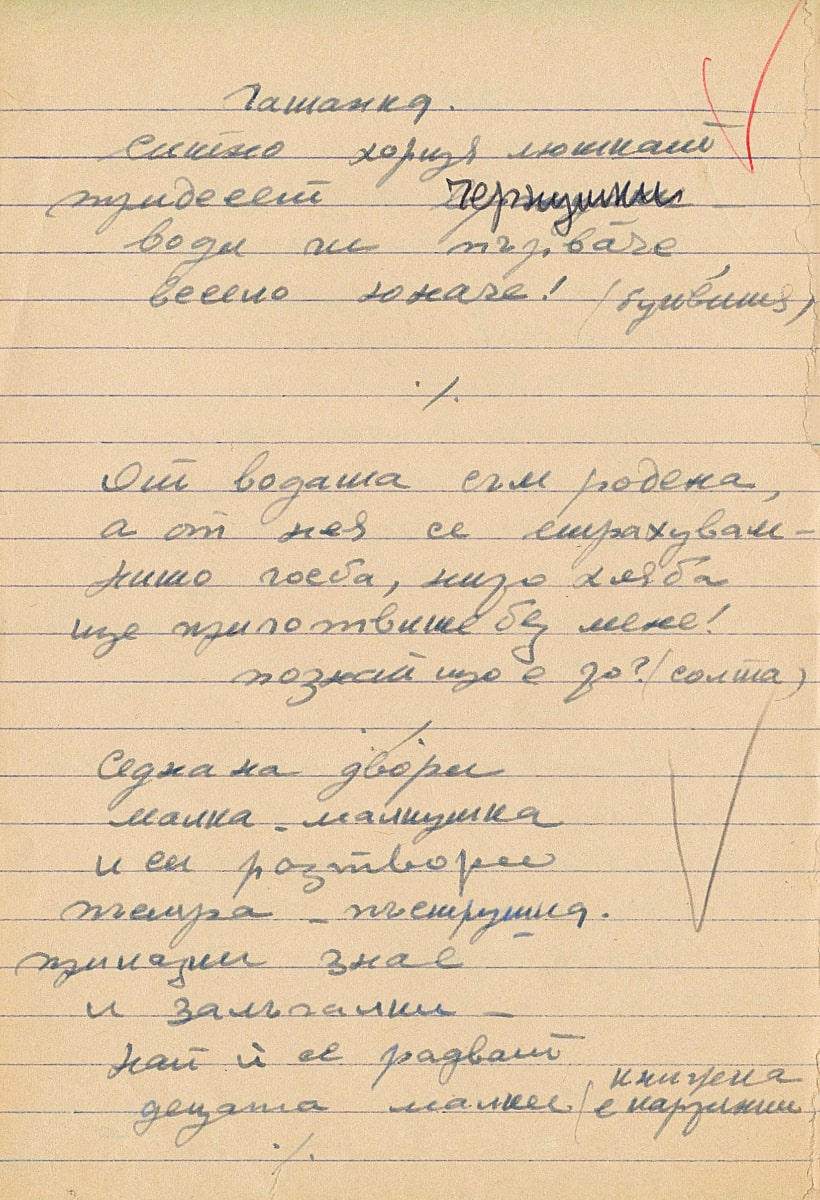 Гатанка.
Ситно хорця люшкат
тридесет Чернушки –
води ги първáче,
весело юначе! (буквите)
·/.
От водата съм родена,
а от нея се страхувам –
нито гозба, нито хляба
ще приготвите без мене!
познай що е то? (солта)
·/.
Седна на двори
малка - малкушка
и си разтвори
пъстра – пъструшка.
приказки знае
и залъгалки –
най ѝ се радват
децата малки (книжка
с картинки
·/.